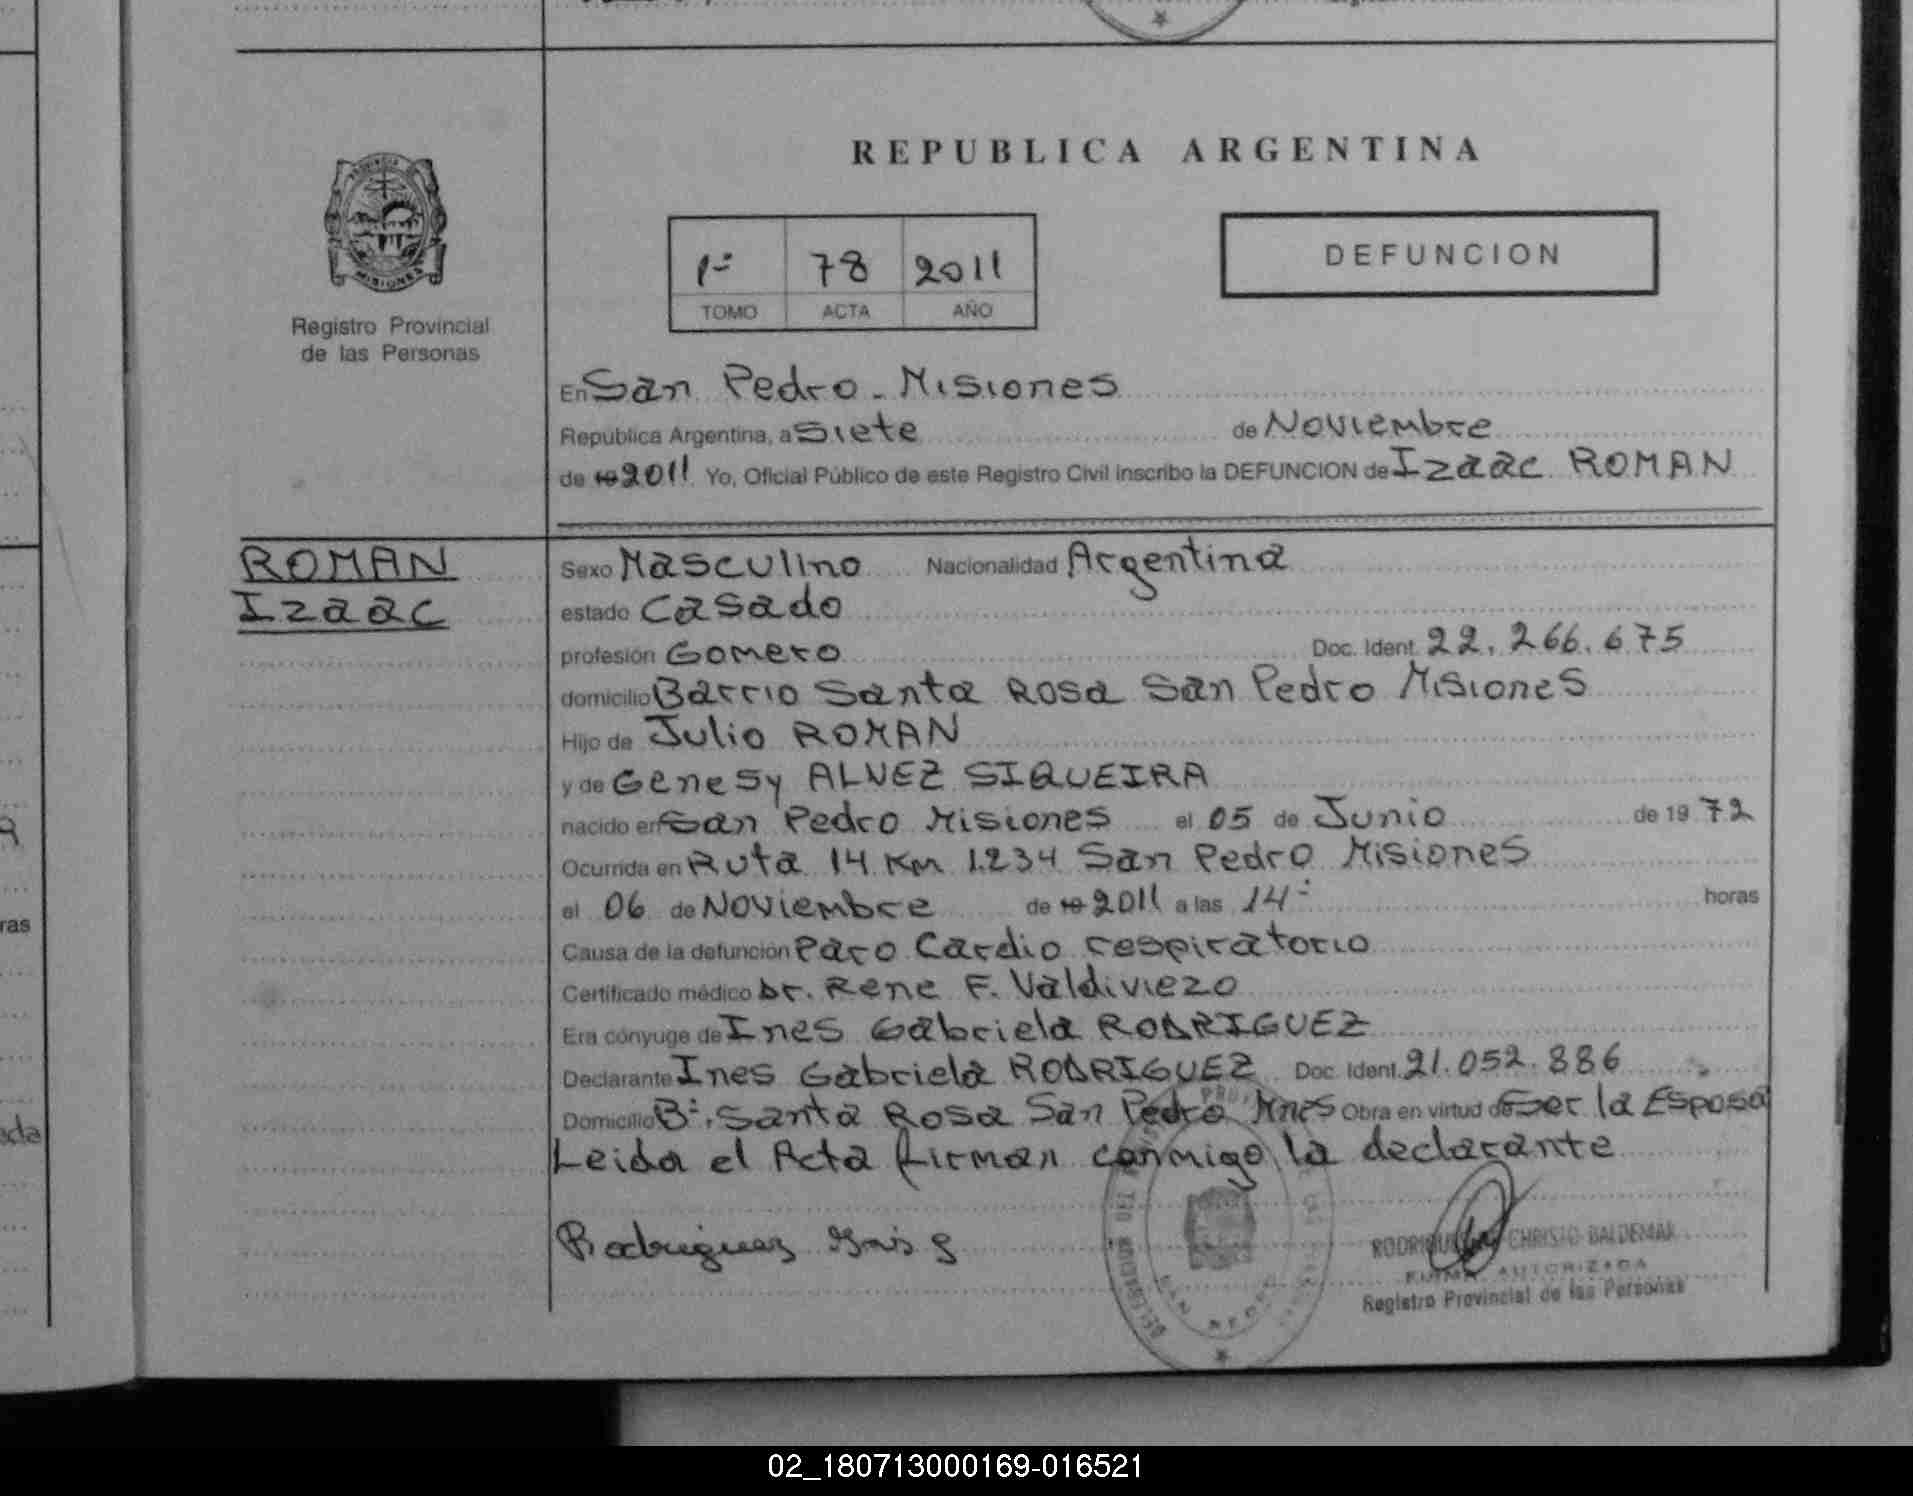 REPUBLICA ARGENTINA
PROVINCIA
MISIONES
Registro Provincial
de las Personas
1º 78 2011
TOMO ACTA AÑO
DEFUNCION
En San Pedro - Misiones
República Argentina, a Siete de Noviembre
de 19 2011 Yo, Oficial Público de este Registro Civil inscribo la DEFUNCION de Izaac ROMAN
ROMAN
Izaac
Sexo Masculino Nacionalidad Argentina
estado Casado
profesión Gomero Doc. Ident. 22.266.675
domicilio Barrio Santa Rosa San Pedro Misiones
Hijo de Julio ROMAN
y de Genesy ALVEZ SIQUEIRA
nacido en San Pedro Misiones el 05 de Junio de 19 72
Ocurrida en Ruta 14 Km 1.234 San Pedro Misiones
el 06 de Noviembre de 19 2011 a las 14- horas
Causa de la defunción Paro Cardio respiratorio
Certificado médico Dr. Rene F. Valdiviezo
Era cónyuge de Ines Gabriela RODRIGUEZ
Declarante Ines Gabriela RODRIGUEZ Doc. Ident. 21.052.886
Domicilio Bº. Santa Rosa San Pedro Mnes Obra en virtud de Ser la Esposa
Leida el Acta firman conmigo la declarante
Rodriguez Ines G
CHRISTO BALDEMAR
FIRMA AUTORIZADA
Registro Provincial de las Personas
SAN PEDRO
ras
02_180713000169-016521